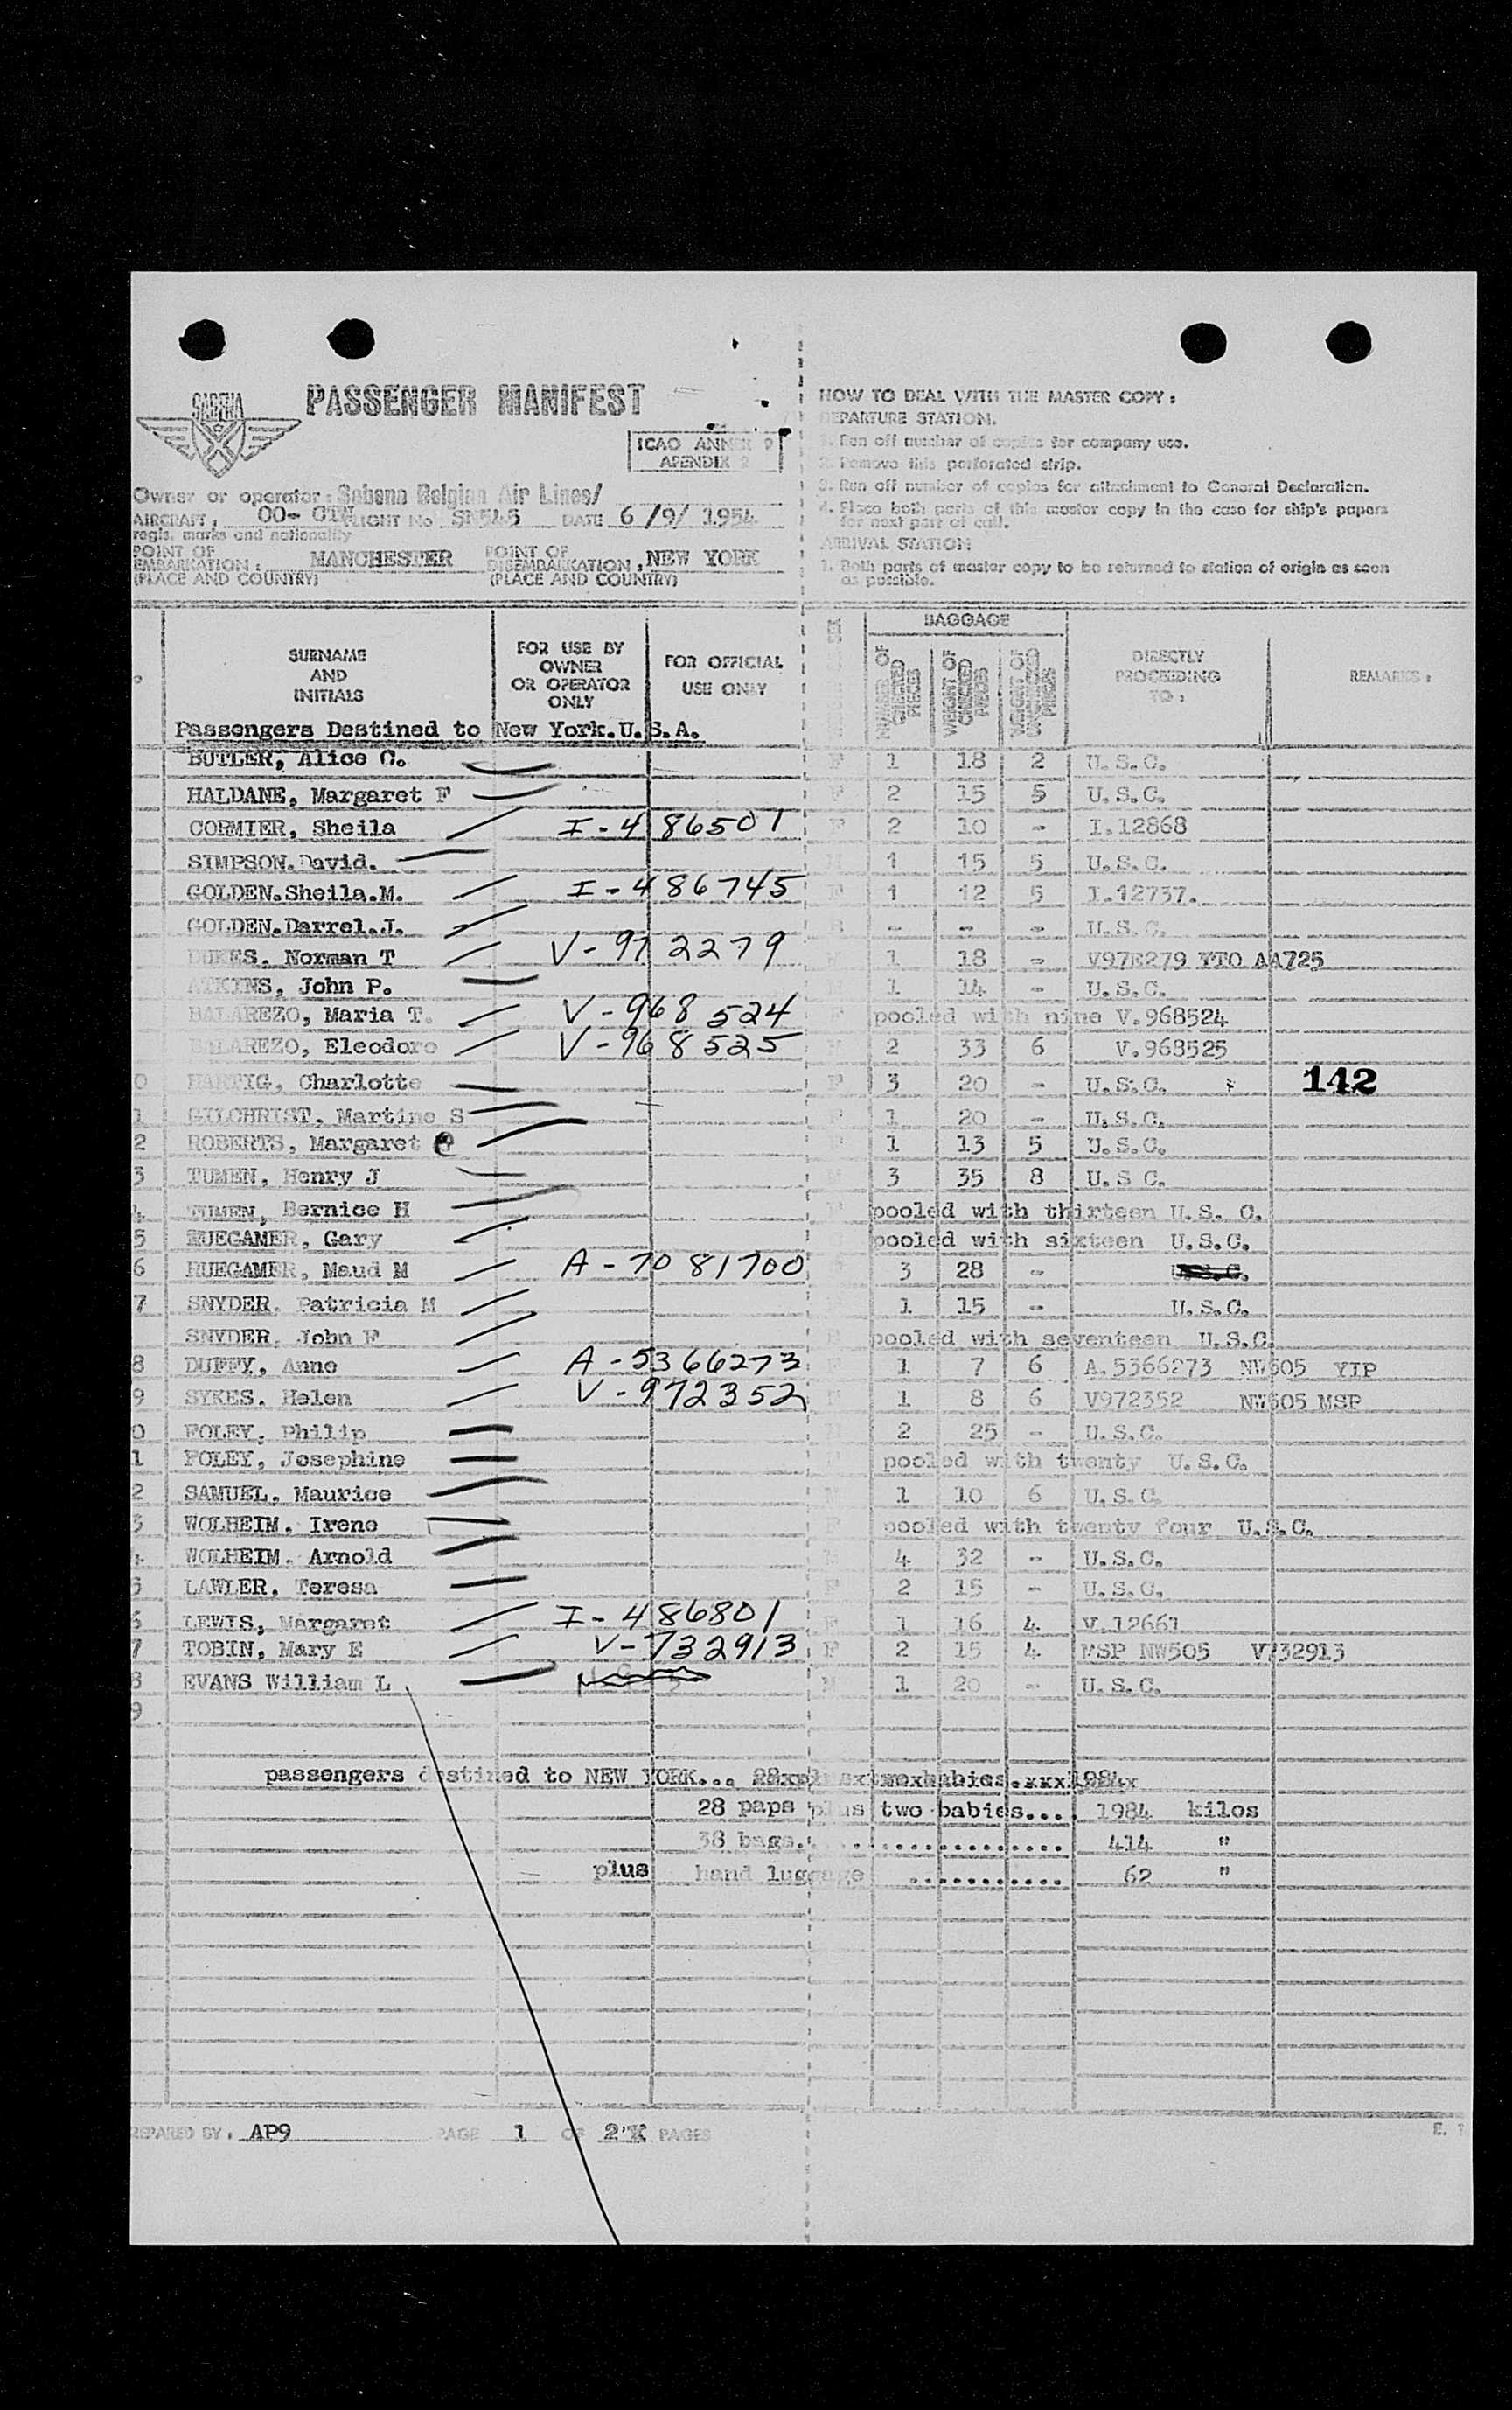 SABENA
PASSENGER MANIFEST
ICAO ANNEX 9
APENDIX 2
Owner or operator: Sabena Belgian Air Lines/
AIRCRAFT: OO- CTW FLIGHT No SN545 DATE 6/9/1954
regis. marks and nationality
POINT OF EMBARKATION: MANCHESTER POINT OF DISEMBARKATION: NEW YORK
(PLACE AND COUNTRY) (PLACE AND COUNTRY)
HOW TO DEAL WITH THE MASTER COPY:
DEPARTURE STATION.
1. Ron off number of copies for company use.
2. Remove this perforated strip.
3. Ron off number of copies for attachment to General Declaration.
4. Place both parts of this master copy in the case for ship's papers
for next port of call.
ARRIVAL STATION
1. Both parts of master copy to be returned to station of origin as soon
as possible.
SURNAME AND INITIALS
FOR USE BY OWNER OR OPERATOR ONLY
FOR OFFICIAL USE ONLY
BAGGAGE
NUMBER OF CHECKED PIECES
WEIGHT OF CHECKED PIECES
WEIGHT OF UNCHECKED PIECES
DIRECTLY PROCEEDING TO:
REMARKS:
Passengers Destined to New York.U.S.A.
BUTLER, Alice C. F 1 18 2 U.S.C.
HALDANE, Margaret F F 2 15 5 U.S.C.
CORMIER, Sheila I-486501 F 2 10 - I.12868
SIMPSON.David. M 1 15 5 U.S.C.
GOLDEN.Sheila.M. I-486745 F 1 12 5 I.12737.
GOLDEN.Darrel.J. - - - U.S.C.
DUKES, Norman T V-972279 M 1 18 - V972279 YTO AA725
ATKINS, John P. M 1 14 - U.S.C.
BALAREZO, Maria T. V-968524 F pooled with nine V.968524
BALAREZO, Eleodoro V-968525 M 2 33 6 V.968525
0 HARTIG, Charlotte F 3 20 - U.S.C. 142
1 GILCHRIST, Martine S F 1 20 - U.S.C.
2 ROBERTS, Margaret F 1 13 5 U.S.C.
3 TUMEN, Henry J M 3 35 8 U.S C.
4 TUMEN, Bernice H F pooled with thirteen U.S. C.
5 RUEGAMER, Gary pooled with sixteen U.S.C.
6 RUEGAMER, Maud M A-7081700 F 3 28 - U.S.C.
7 SNYDER, Patricia M 1 15 - U.S.C.
SNYDER, John F pooled with seventeen U.S.C.
8 DUFFY, Anne A-5366273 F 1 7 6 A.5366273 NW505 YIP
9 SYKES, Helen V-972352 F 1 8 6 V972352 NW505 MSP
0 FOLEY, Philip 2 25 - U.S.C.
1 FOLEY, Josephine pooled with twenty U.S.C.
2 SAMUEL, Maurice M 1 10 6 U.S.C.
3 WOLHEIM, Irene F pooled with twenty four U.S.C.
4 WOLHEIM, Arnold M 4 32 - U.S.C.
5 LAWLER, Teresa F 2 15 - U.S.C.
6 LEWIS, Margaret I-486801 F 1 16 4 V.12661
7 TOBIN, Mary E V-732913 F 2 15 4 MSP NW505 V732913
8 EVANS William L M 1 20 - U.S.C.
9
passengers destined to NEW YORK...
28 paps plus two babies.... 1984 kilos
38 bags.................. 414 "
plus hand luggage ............ 62 "
PREPARED BY: AP9 PAGE 1 OF 2 PAGES